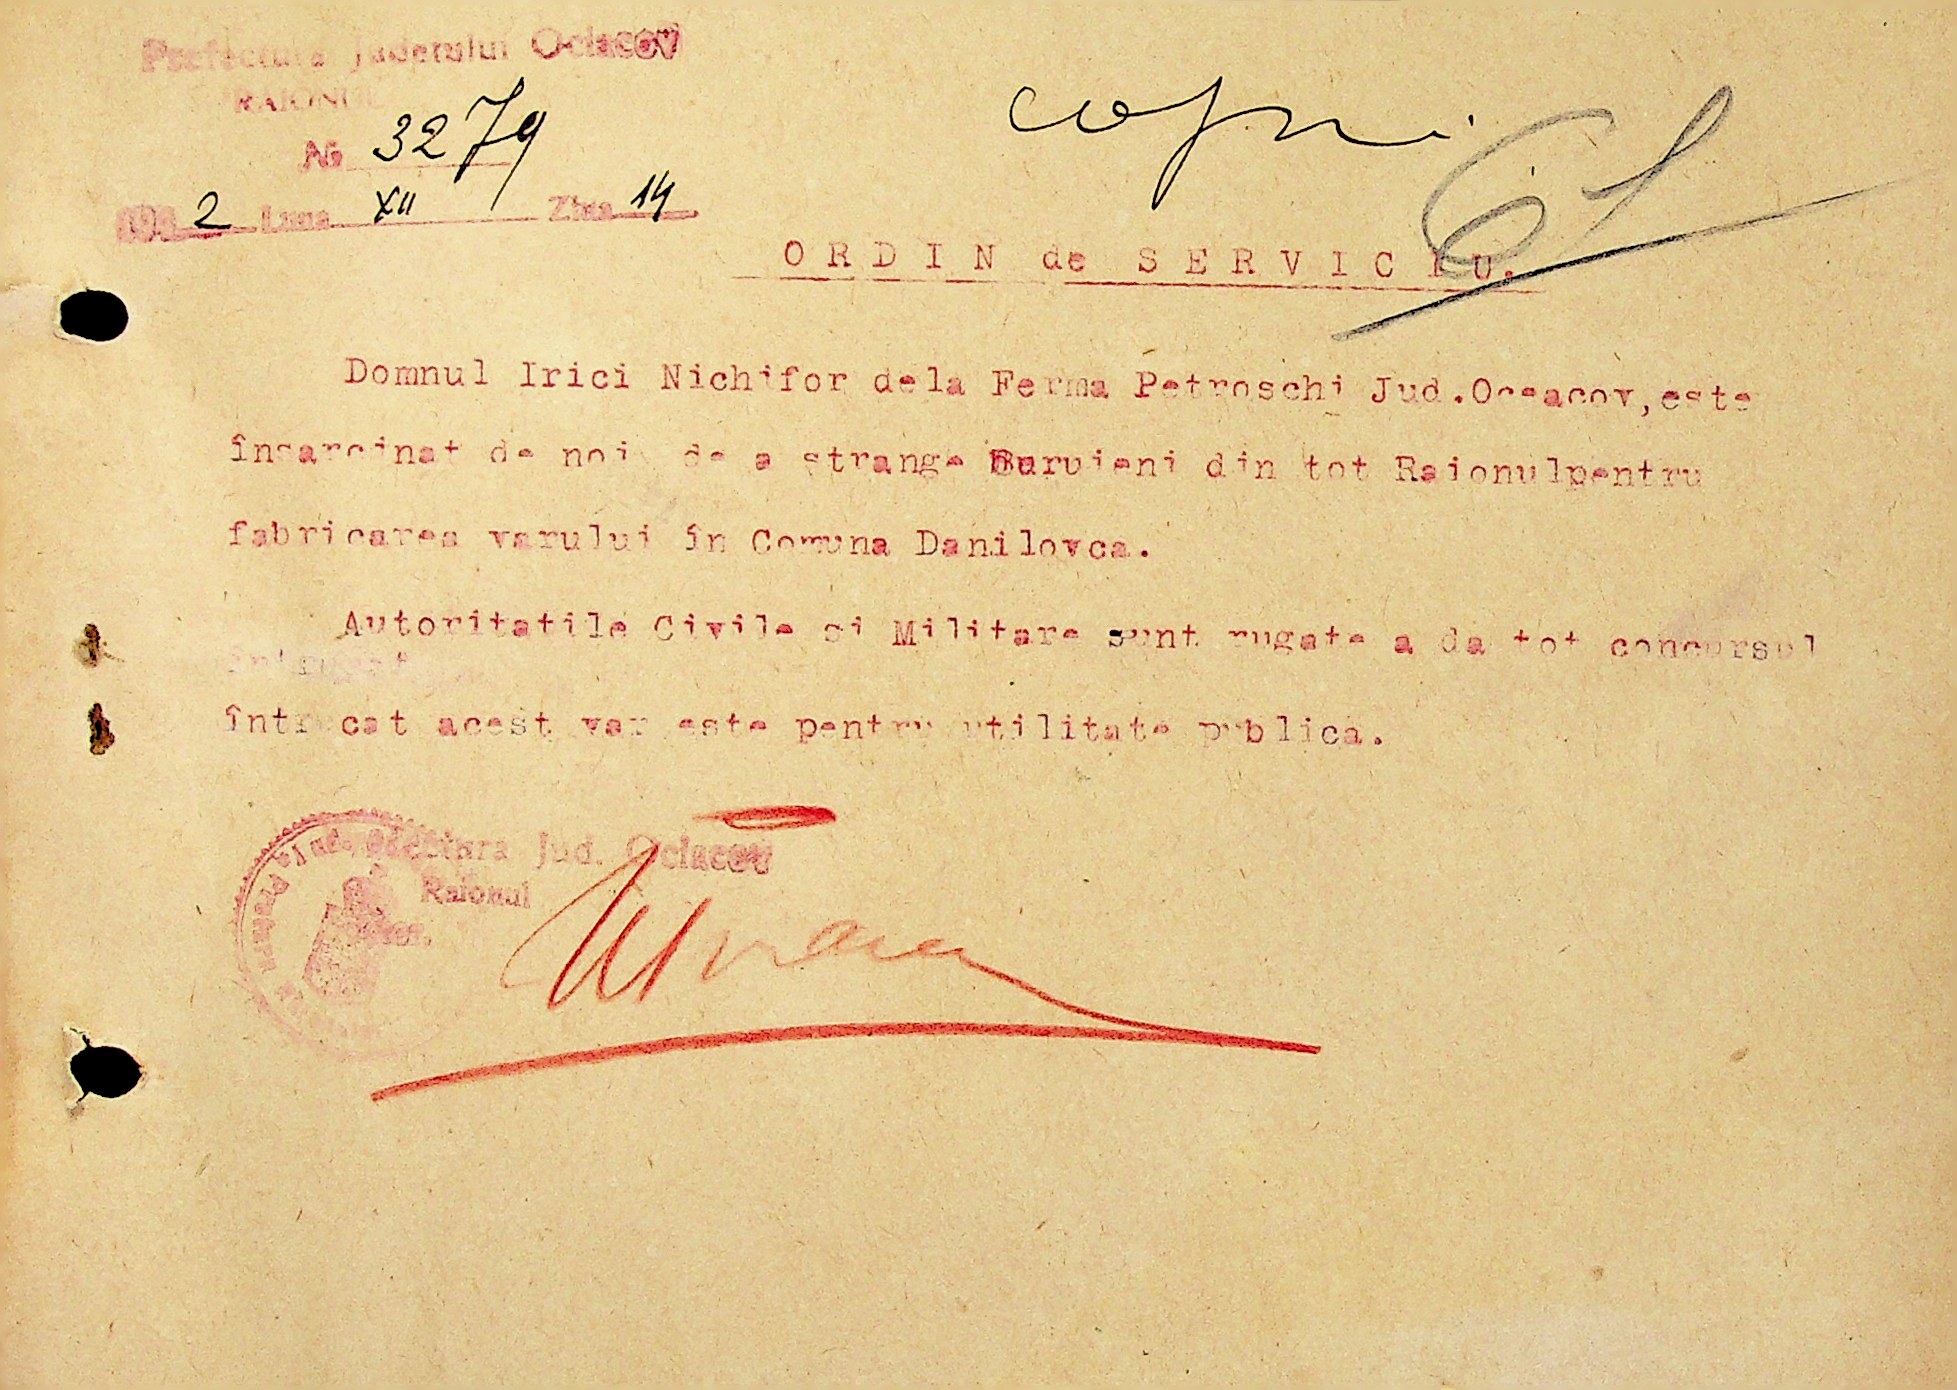 Prefectura Judetului Ociacov
RAIONUL
№ 3279
194 2 Luna XII Ziua 14
copie
ORDIN de SERVICIU.
Domnul Irici Nichifor dela Ferma Petroschi Jud.Oceacov,este
însarcinat de noi de a strange Buruieni din tot Raionulpentru
fabricarea varului în Comuna Danilovca.
Autoritatile Civile si Militare sunt rugate a da tot concursul
întrucat acest var este pentru utilitate publica.
Prefectura Jud. Ociacov
Raionul